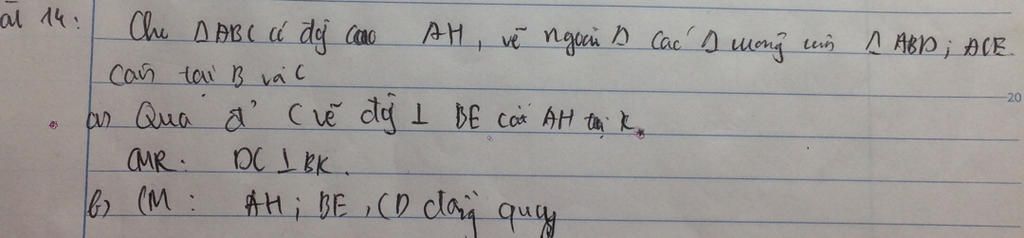 ài 14:
Cho ΔABC có đg cao AH, vẽ ngoài Δ các Δ vuông cân Δ ABD; ACE
cân tại B và C
a) Qua đ' C vẽ đg ⊥ BE cắt AH tại K.
CMR: DC ⊥ BK.
b) CM: AH; BE, CD đồng quy
20